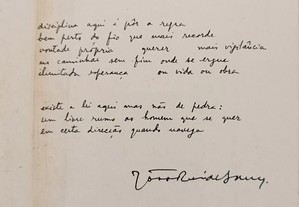 disciplina aqui é pôr a regra
bem perto do fio que mais recorde
vontade própria querer mais vigilância
no caminhar sem fim onde se ergue
ilimitada esperança ou vida ou obra
existe a lei aqui mas não de pedra:
um livre rumo ao homem que se quer
em certa direcção quando navega
João Rui de Sousa